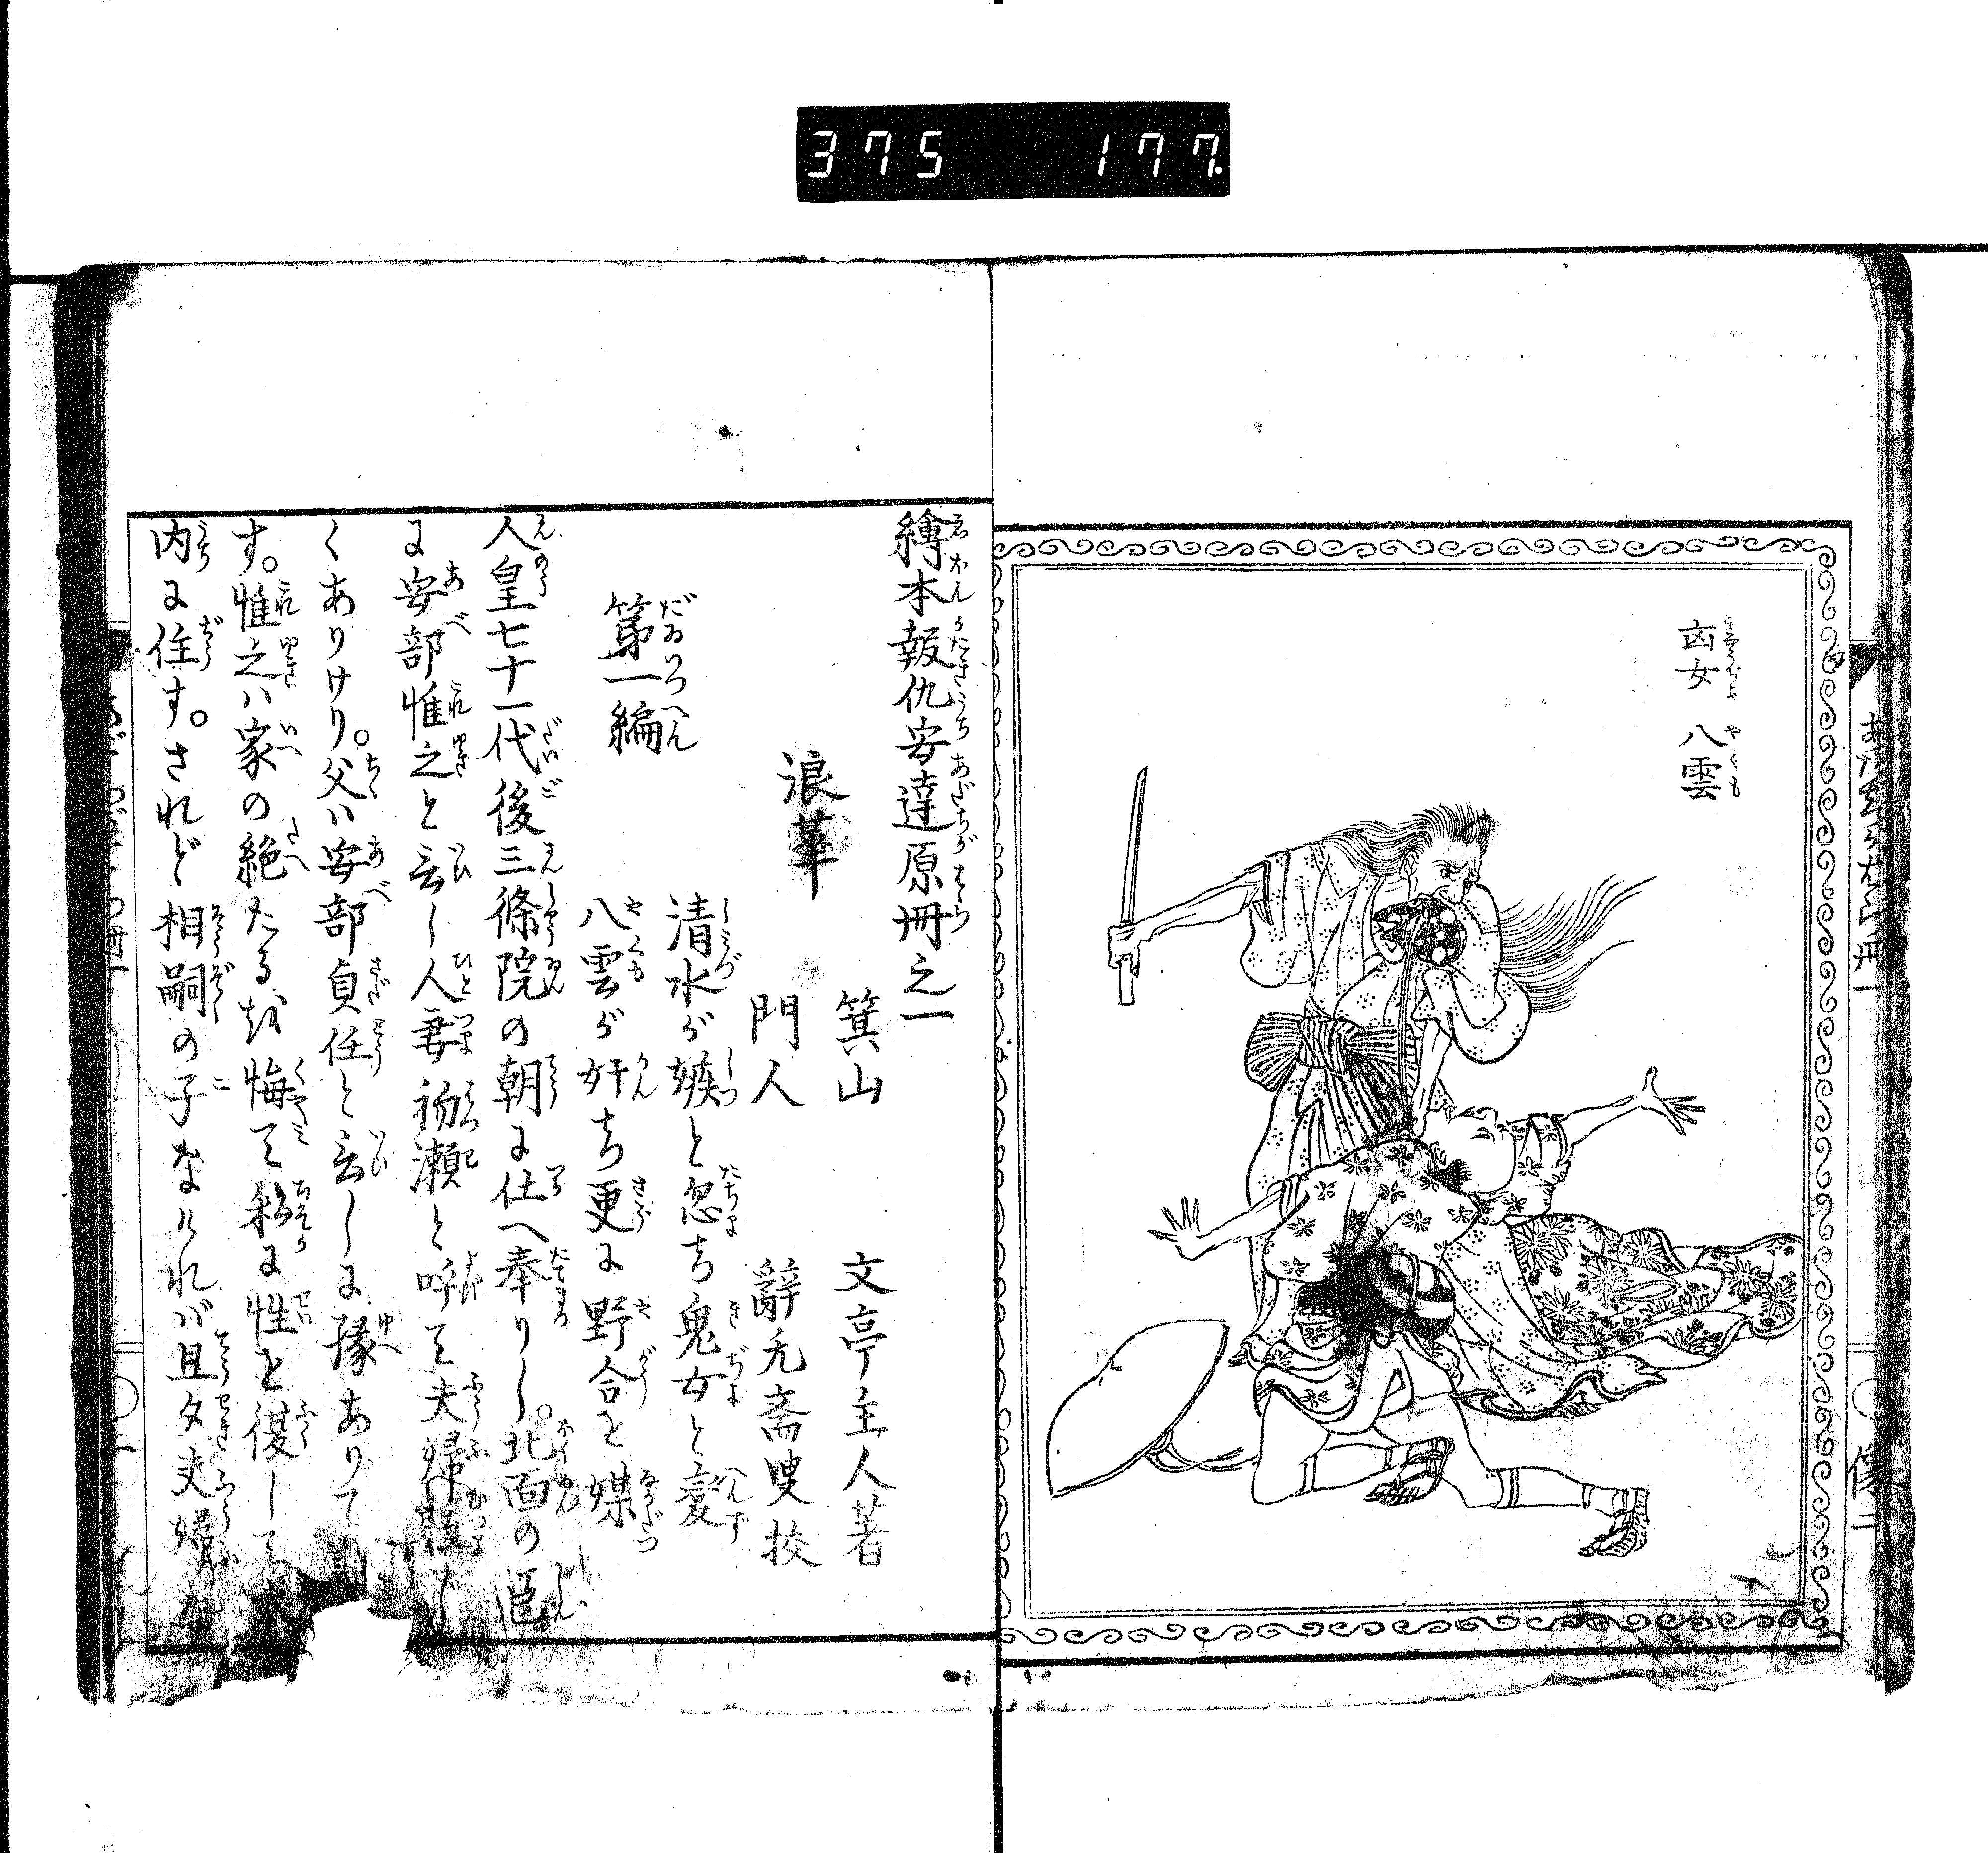 375 177.
凶女 八雲
繪本報仇安達原冊之一
浪華 箕山 文亭主人著
門人 辭无斎叟挍
第一編
清水が嫉と忽ち鬼女と變
八雲が奸ち更に野合を媒
人皇七十一代後三條院の朝に仕へ奉りし。北面の臣
に安部惟之と云し人妻初瀬と呼て夫婦睦じ
くありけり。父ハ安部貞任と云しに縁ありて
す。惟之ハ家の絶たるを悔て私に性を復して
内に住す。されど相嗣の子なけれバ旦夕夫婦